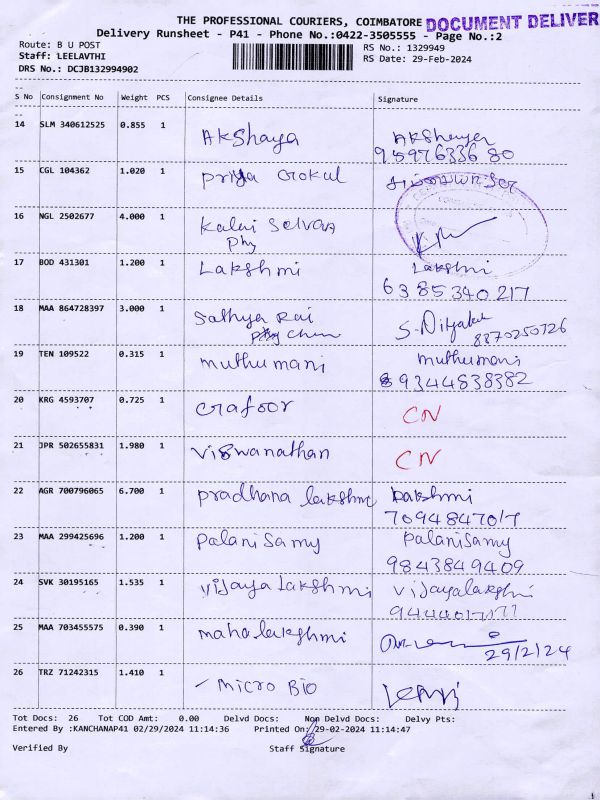 THE PROFESSIONAL COURIERS, COIMBATORE DOCUMENT DELIVER
Delivery Runsheet - P41 - Phone No.:0422-3505555 - Page No.:2
Route: B U POST RS No.: 1329949
Staff: LEELAVTHI RS Date: 29-Feb-2024
DRS No.: DCJB132994902
S No Consignment No Weight PCS Consignee Details Signature
14 SLM 340612525 0.855 1 Akshaya
15 CGL 104362 1.020 1 Priya Gokul
16 NGL 2502677 4.000 1 Kalai Selvan
Phy
17 BOD 431301 1.200 1 Lakshmi Lakshmi
6385340217
18 MAA 864728397 3.000 1 Sathya Rai
8870250726
19 TEN 109522 0.315 1 muthu mani muthumani
9344838382
20 KRG 4593707 0.725 1 Gafoor CN
21 JPR 502655831 1.980 1 Viswanathan CN
22 AGR 700796065 6.700 1 pradhana lakshmi Lakshmi
7094847017
23 MAA 299425696 1.200 1 Palanisamy Palanisamy
9843849409
24 SVK 30195165 1.535 1 Vijaya Lakshmi Vijayalakshmi
25 MAA 703455575 0.390 1 maha lakshmi
29/2/24
26 TRZ 71242315 1.410 1 Micro Bio
Tot Docs: 26 Tot COD Amt: 0.00 Delvd Docs: Non Delvd Docs: Delvy Pts:
Entered By :KANCHANAP41 02/29/2024 11:14:36 Printed On: 29-02-2024 11:14:47
Verified By Staff Signature